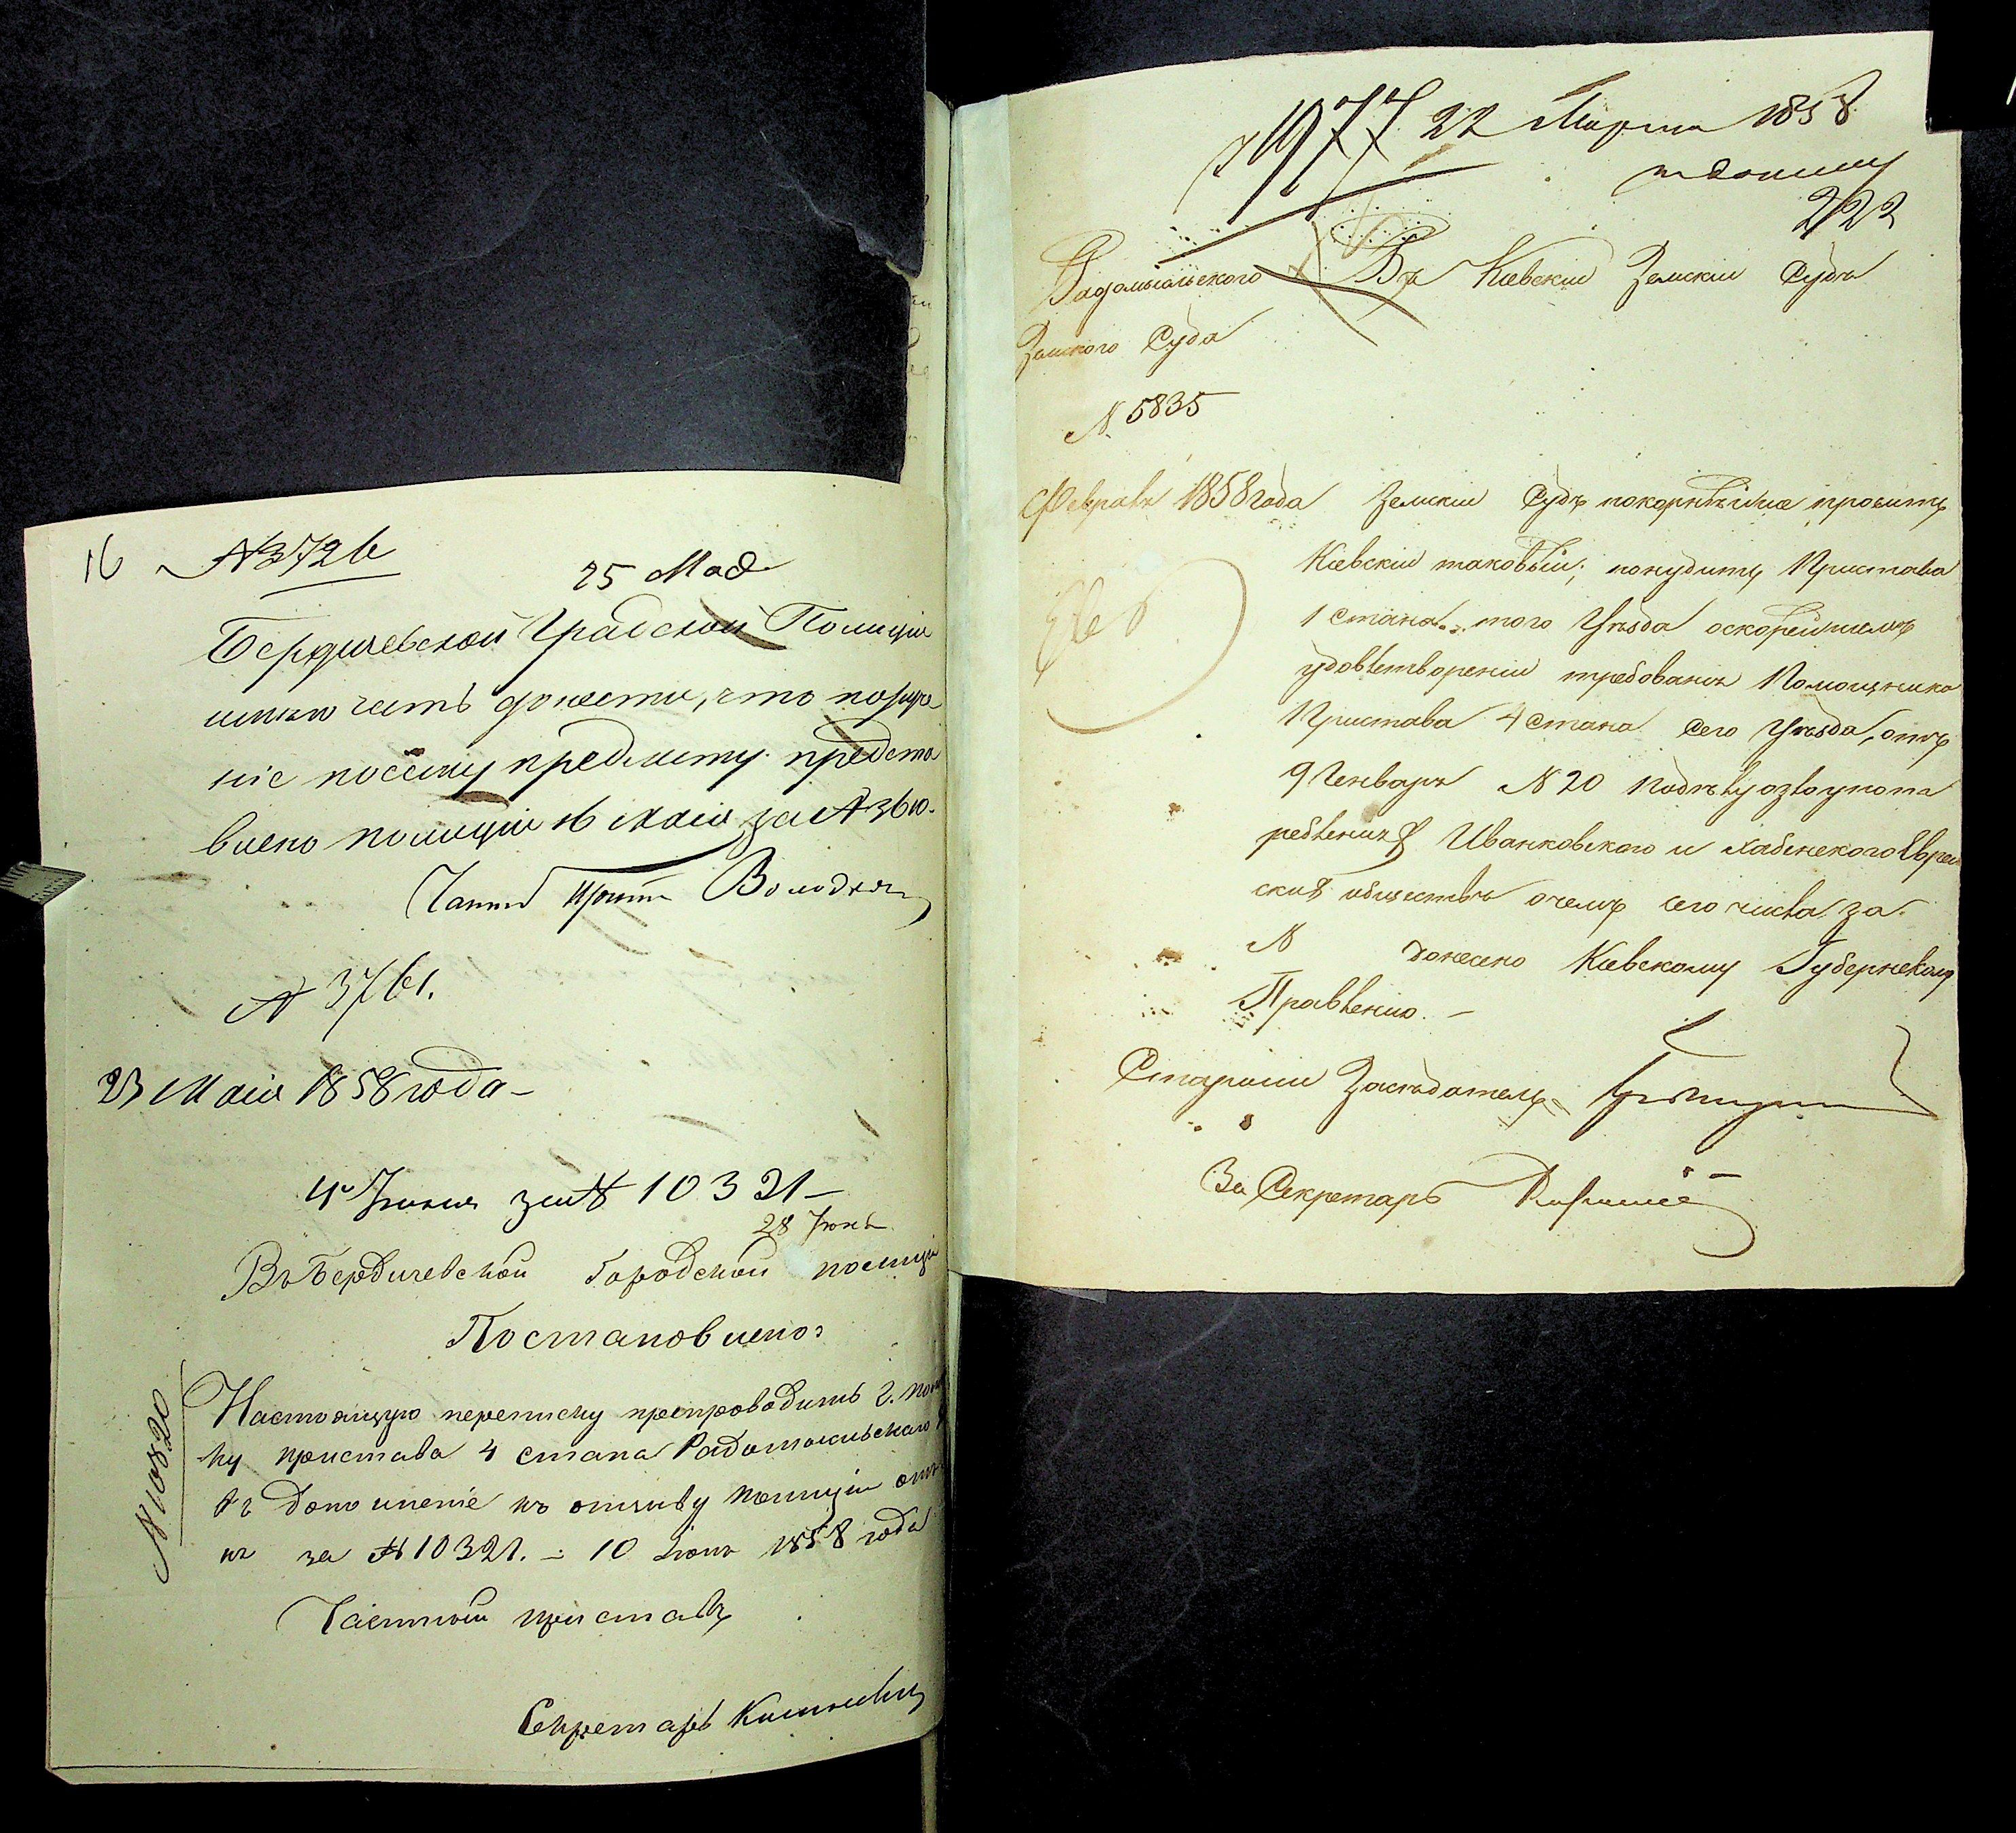 16 № 3726
25 Мая
Бердичевской Градской Полиции
имею честь донести, что
ніе посему предмету представ
влено полиции 16 Маія за № 3610.
Част Прист
№ 3761.
23 Маія 1858 года
4 Іюня за № 10321
28 Іюня
Въ Бердичевской Городской полиціи
Постановлено:
№ 10820
Настоящую переписку препроводить г. пом
ку пристава 4 стана Радомысльскаго
въ дополненіе къ отзыву полиціи отъ
за № 10321. 10 Іюня 1858 года
Частный приставъ
Секретарь
1977 22 Марта 1858
222
Радомысльского Въ Кіевскій Земскій Судъ
Земского Суда
№ 5835
Февраля 1858 года Земскій Судъ покорнѣйше проситъ
Кіевскій таковый, понудить Пристава
1 стана того Уѣзда оскорейшемъ
удовлетвореніи требованія Помощника
Пристава 4 стана сего Уѣзда, отъ
9 Генваря № 20
Иванковского и Хабенского Еврей
скихъ обществъ очемъ сего числа за
№ донесено Кіевскому Губернскому
Правленію.
Старшій Засѣдатель
За Секретаря